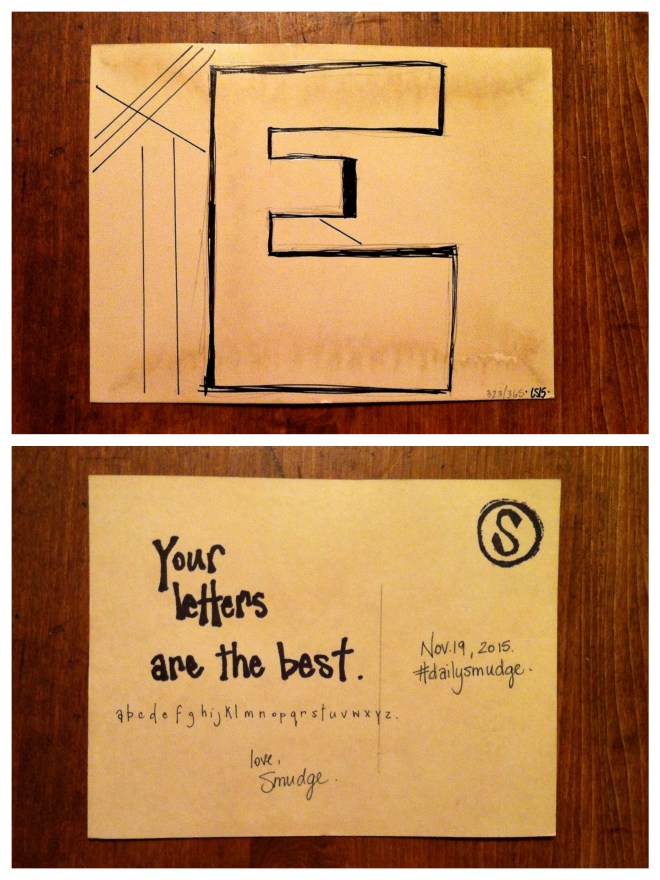 E
323/365 • CS15 •
S
Your
letters
are the best.
abcdefghijklmnopqrstuvwxyz.
love,
Smudge.
Nov.19, 2015.
#dailysmudge.